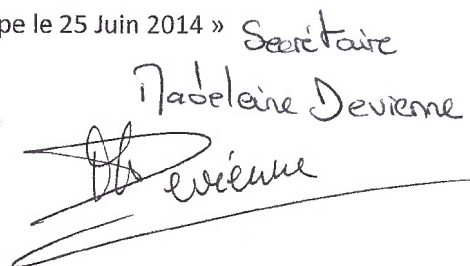 pe le 25 Juin 2014 » Secrétaire
Madeleine Devienne
Devienne